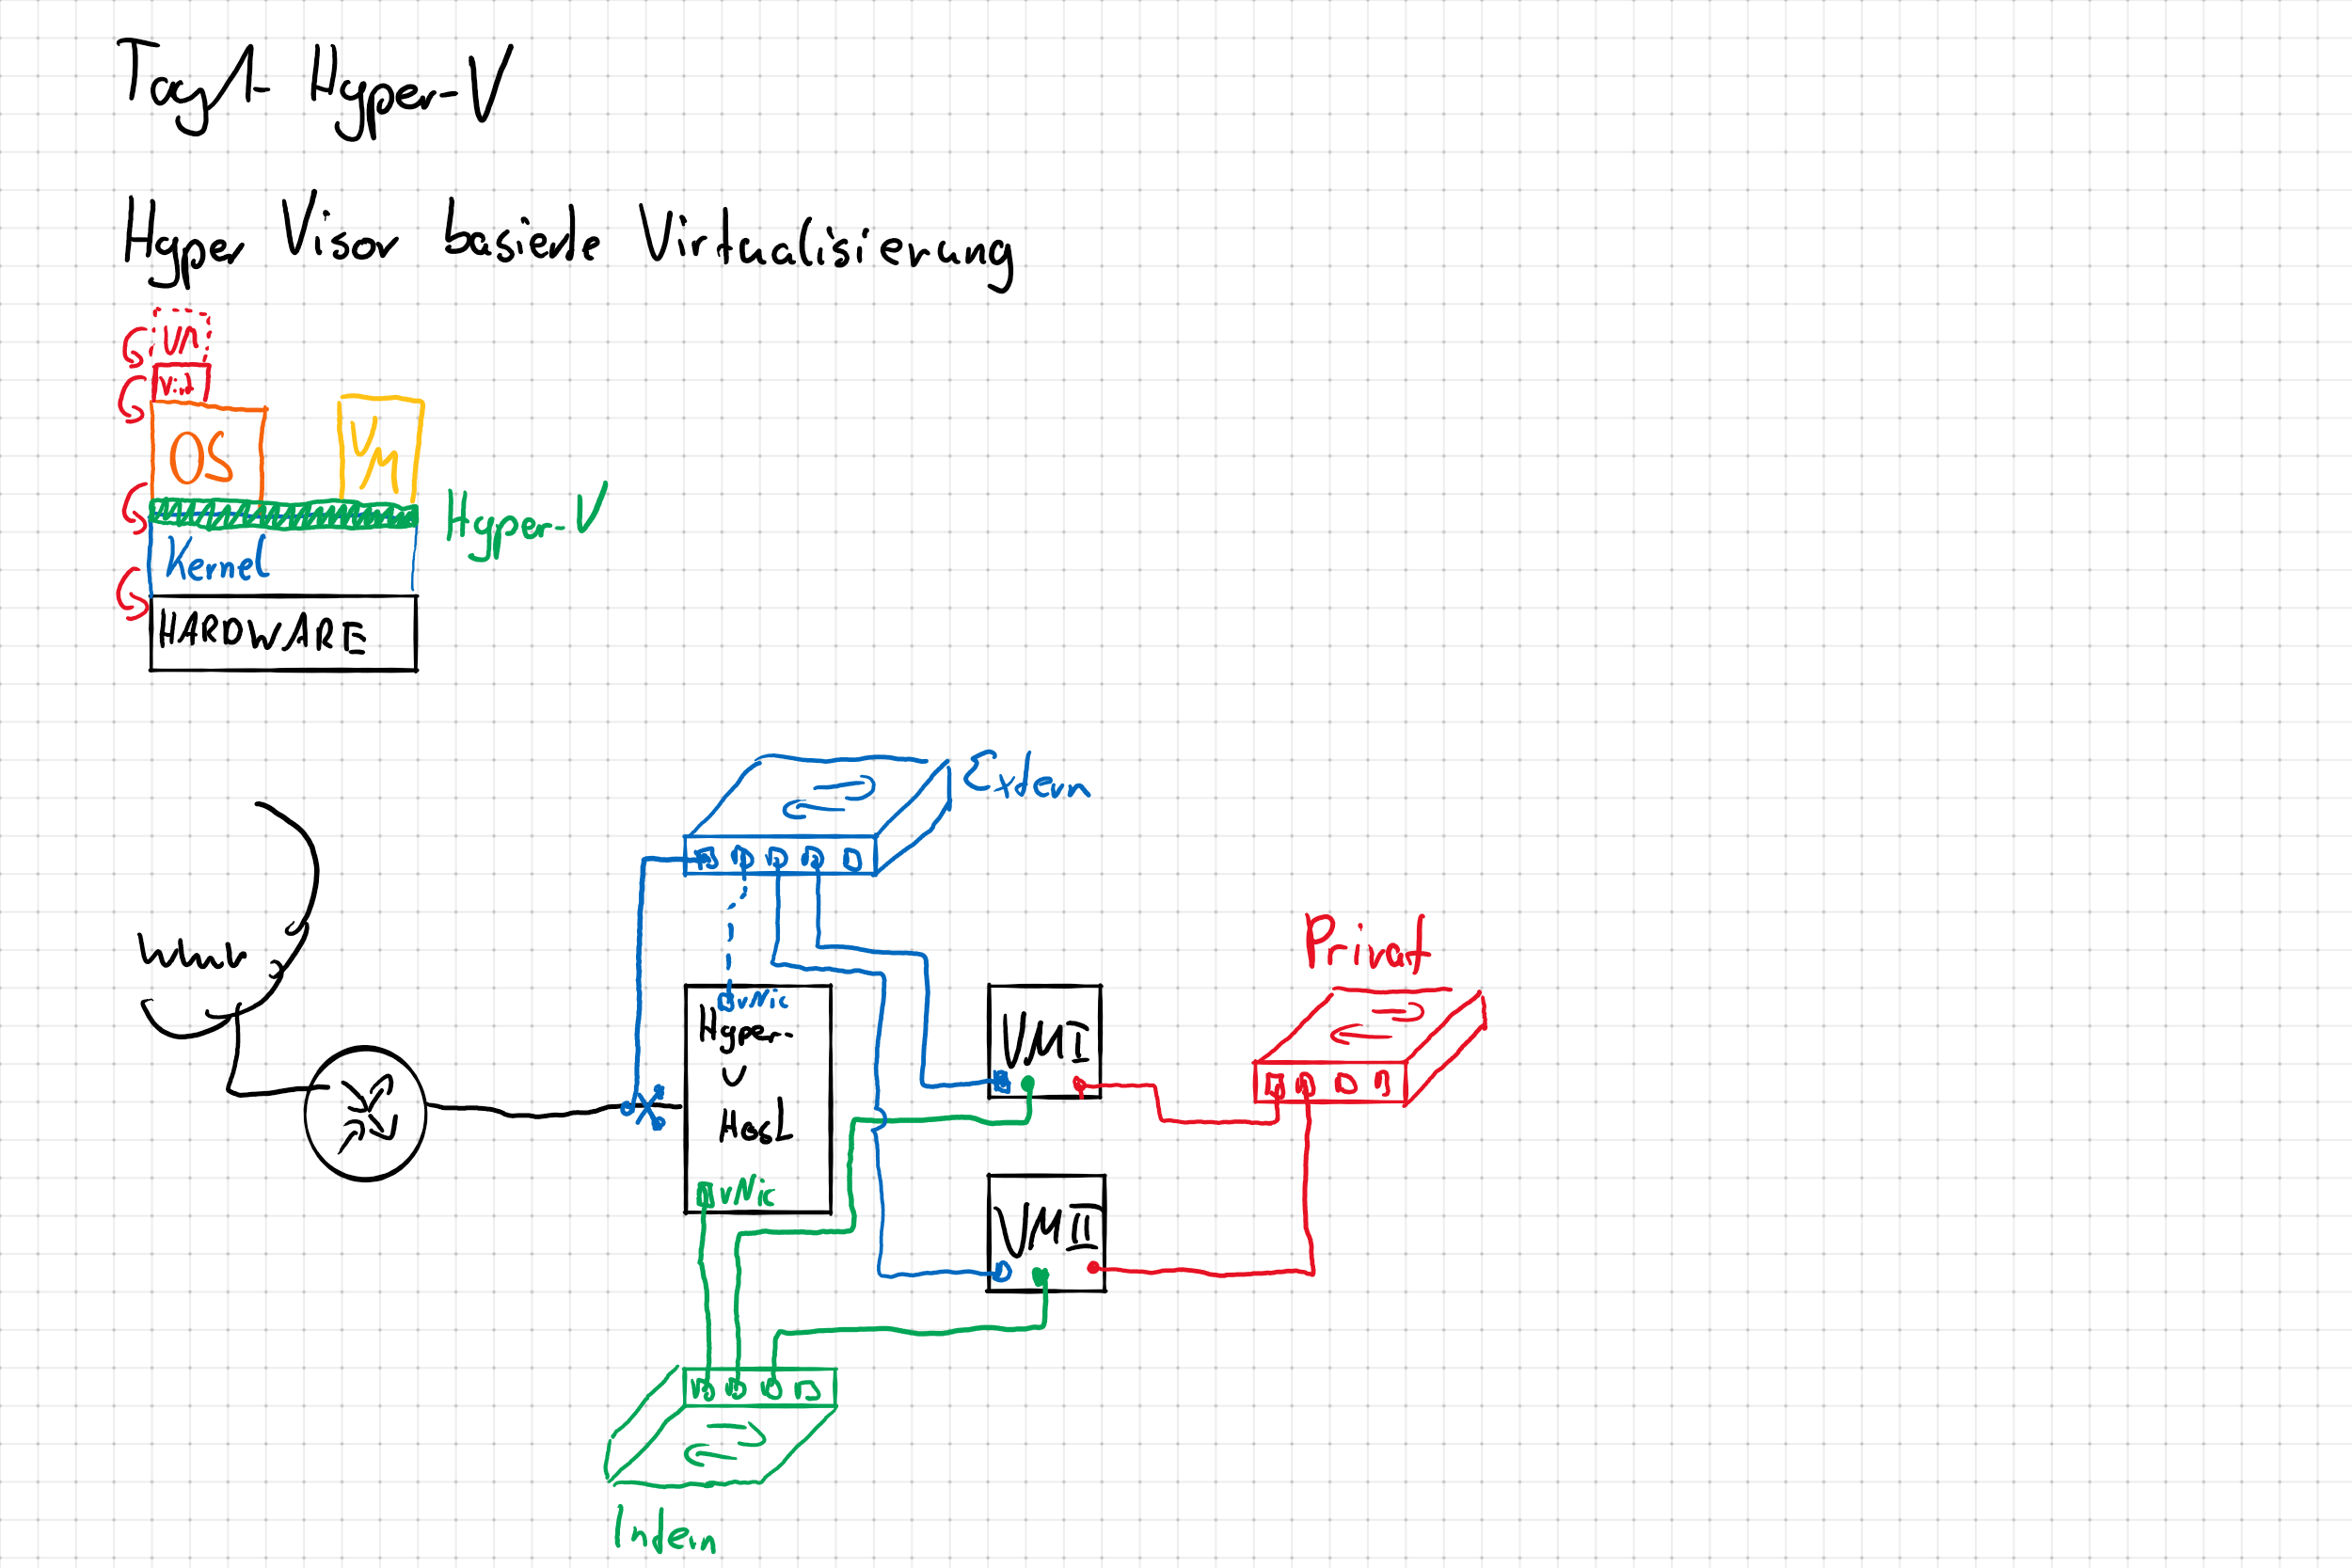 Tag1 Hyper-V
Hyper Visor basierde Virtualisierung
VM
OS
VM
Hyper-V
Kernel
HARDWARE
Extern
www
Privat
vNic
Hyper-
V
Host
VM I
vNic
VM II
Intern